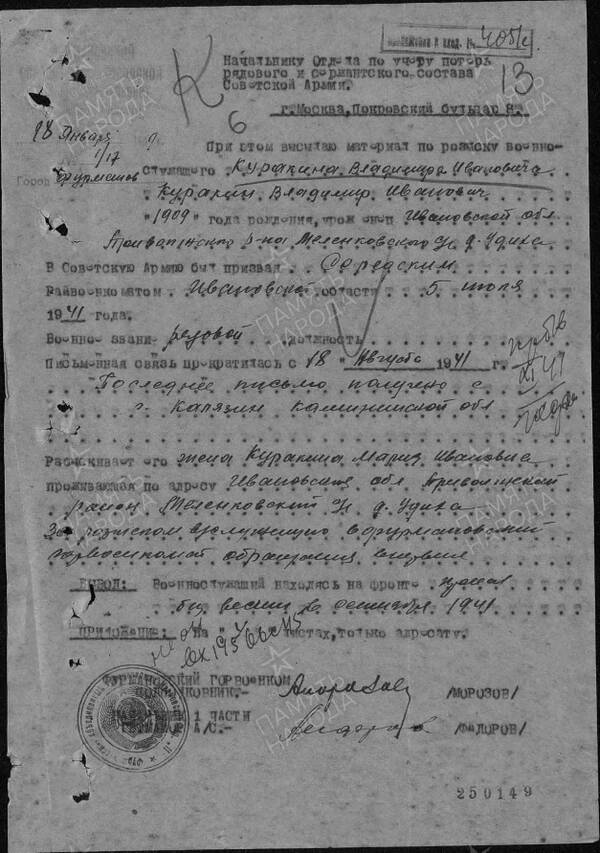 405/с
Начальнику Отдела по учету потерь
рядового и сержантского состава
Советской Армии.
13
г.Москва,Покровский бульвар 8.
6
28 Января
1/17
Фурманов
При этом высылаю материал по розыску военно-
служащего Куракина Владимира Ивановича
Куракин Владимир Иванович
"1909" года рождения, урож енец Ивановской обл
Приволжского р-на Меленковского с/с д. Удиха
В Советскую Армию был призван Середским
Райвоенкоматом Ивановской области 5 июля
1941 года.
Военное звание рядовой должность
Письменная связь прекратилась с "18" Августа 1941 г.
Последнее письмо получено с
г. Калязин Калининской обл
Разыскивает его жена Куракина Мария Ивановна
проживающая по адресу Ивановская обл Приволжский
район Меленковский с/с д. Удиха
За розыском в Фурмановский
горвоенкомат обращения
ВЫВОД: Военнослужащий находясь на фронте пропал
без вести в 1941
ПРИЛОЖЕНИЕ: на листах,только адресату.
ФУРМАНОВСКИЙ ГОРВОЕНКОМ
ПОДПОЛКОВНИК.- /МОРОЗОВ/
НАЧАЛЬНИК 1 ЧАСТИ
А/С- /ФАДОРОВ/
250149
ПАМЯТЬ НАРОДА